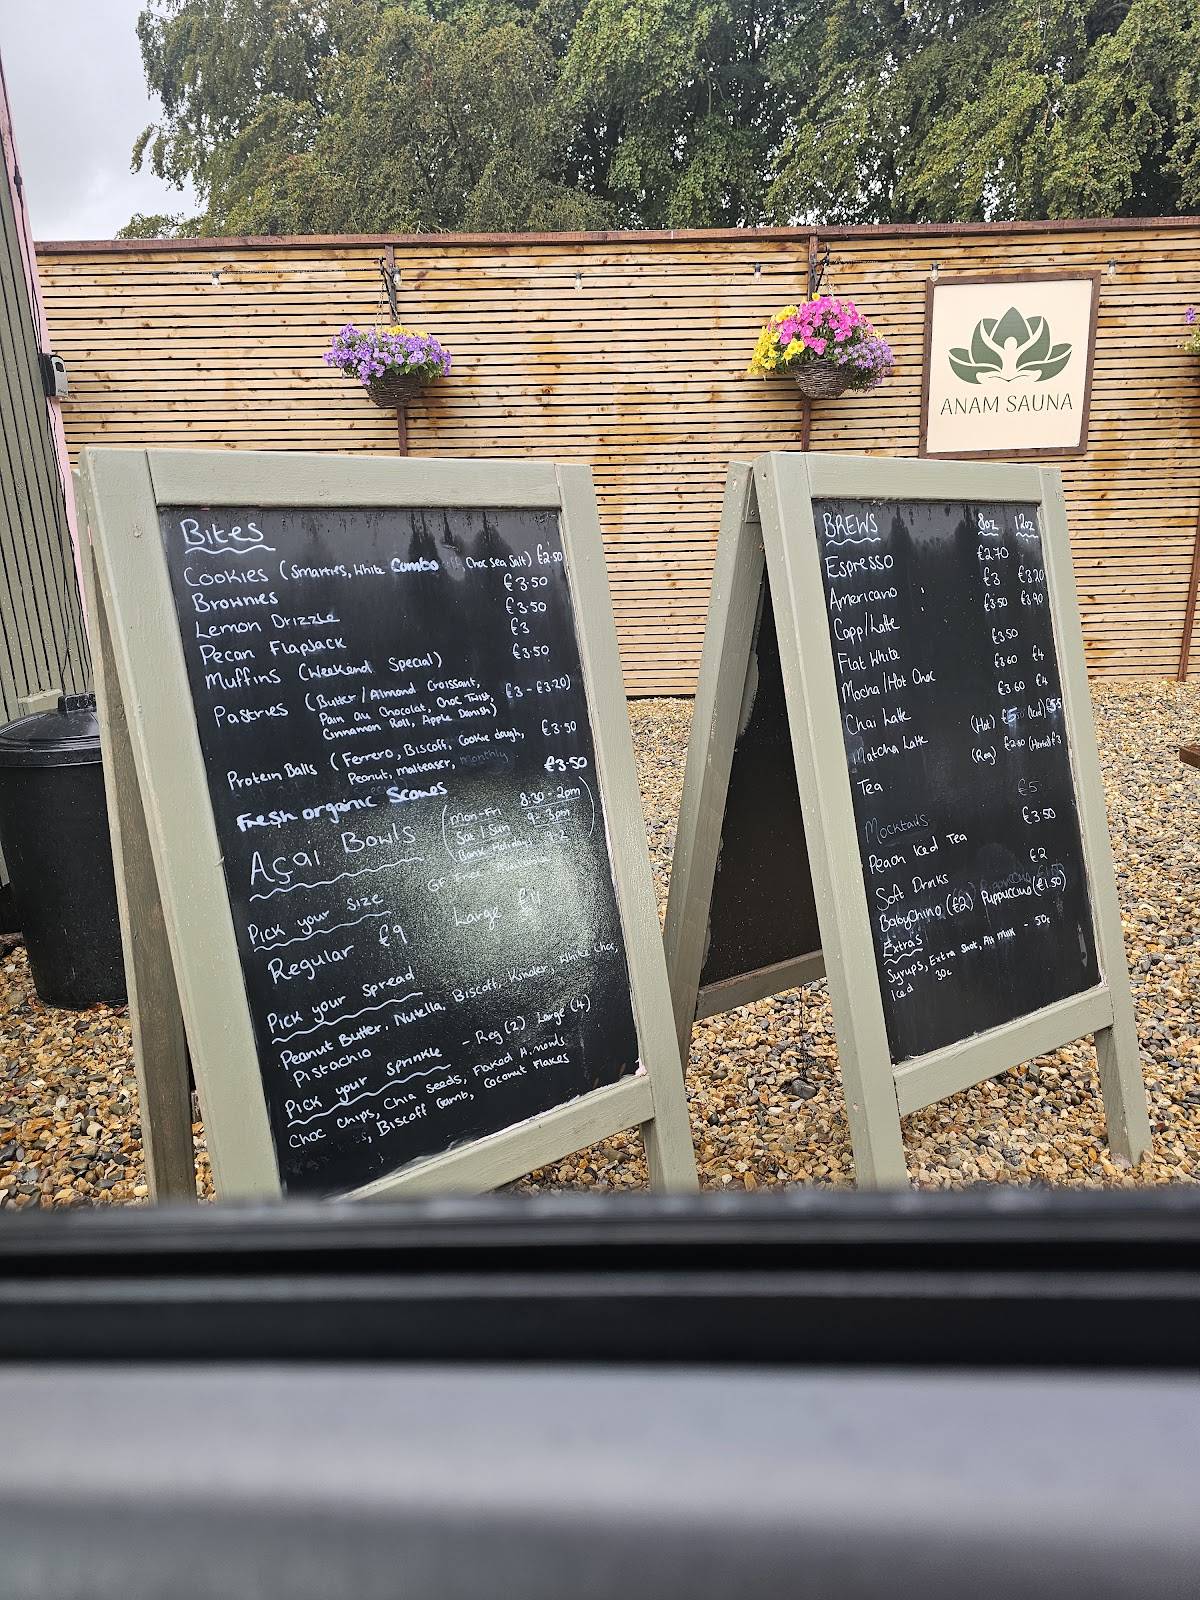 ANAM SAUNA
Bites
Cookies (Smarties, White Combo Choc Sea Salt) €2.50
Brownies €3.50
Lemon Drizzle €3.50
Pecan Flapjack €3
Muffins (Weekend Special) €3.50
Pastries (Butter/Almond Croissant, €3 - €3.20)
Pain au Chocolat, Choc Twist,
Cinnamon Roll, Apple Danish)
Protein Balls (Ferrero, Biscoff, Cookie dough, €3.50
Peanut, malteaser, monthly
Fresh organic Scones €3.50
Açai Bowls (Mon-Fri 8:30-2pm
Sat/Sun 9-3pm
Bank Holidays 9-2)
GF Free
Pick your size
Regular €9 Large €11
Pick your spread
Peanut Butter, Nutella, Biscoff, Kinder, White Choc,
Pistachio
Pick your sprinkle - Reg (2) Large (4)
Choc chips, Chia Seeds, Flaked Almonds
, Biscoff Crumb, Coconut Flakes
BREWS 8oz 12oz
Espresso €2.70
Americano €3 €3.20
Capp/Latte €3.50 €3.90
Flat White €3.50
Mocha/Hot Choc €3.60 €4
Chai Latte €3.60 €4
Matcha Latte (Hot) €5 (Iced) €5.5
Tea (Reg) €2.50 (Herbal) €3
Mocktails €5
Peach Iced Tea €3.50
Soft Drinks €2
BabyChino (€2) Puppuccino (€1.50)
Extra's
Syrups, Extra Shot, Alt Milk - 50c
Iced 30c